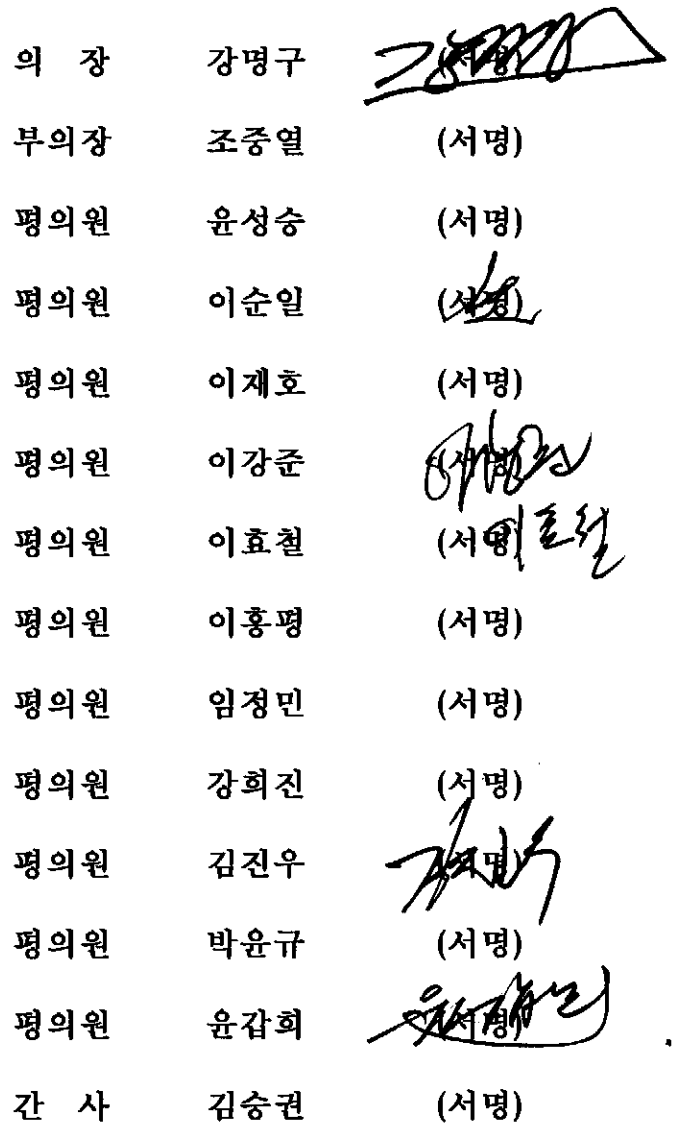 의 장 강명구 (서명)
부의장 조중열 (서명)
평의원 윤성승 (서명)
평의원 이순일 (서명)
평의원 이재호 (서명)
평의원 이강준 (서명)
평의원 이효철 (서명) 이효철
평의원 이홍평 (서명)
평의원 임정민 (서명)
평의원 강희진 (서명)
평의원 김진우 (서명)
평의원 박윤규 (서명)
평의원 윤갑희 (서명)
간 사 김승권 (서명)